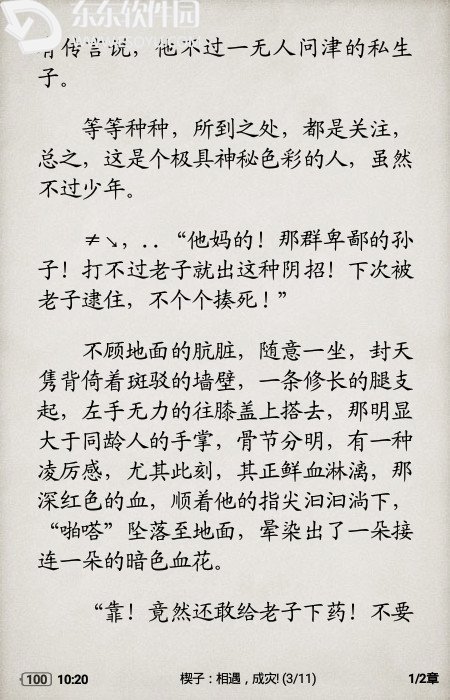 东东软件园
有传言说，他不过一无人问津的私生
子。
等等种种，所到之处，都是关注，
总之，这是个极具神秘色彩的人，虽然
不过少年。
≠↘，．．“他妈的！那群卑鄙的孙
子！打不过老子就出这种阴招！下次被
老子逮住，不个个揍死！”
不顾地面的肮脏，随意一坐，封天
隽背倚着斑驳的墙壁，一条修长的腿支
起，左手无力的往膝盖上搭去，那明显
大于同龄人的手掌，骨节分明，有一种
凌厉感，尤其此刻，其正鲜血淋漓，那
深红色的血，顺着他的指尖汩汩淌下，
“啪嗒”坠落至地面，晕染出了一朵接
连一朵的暗色血花。
“靠！竟然还敢给老子下药！不要
100 10:20 楔子：相遇，成灾! (3/11) 1/2章